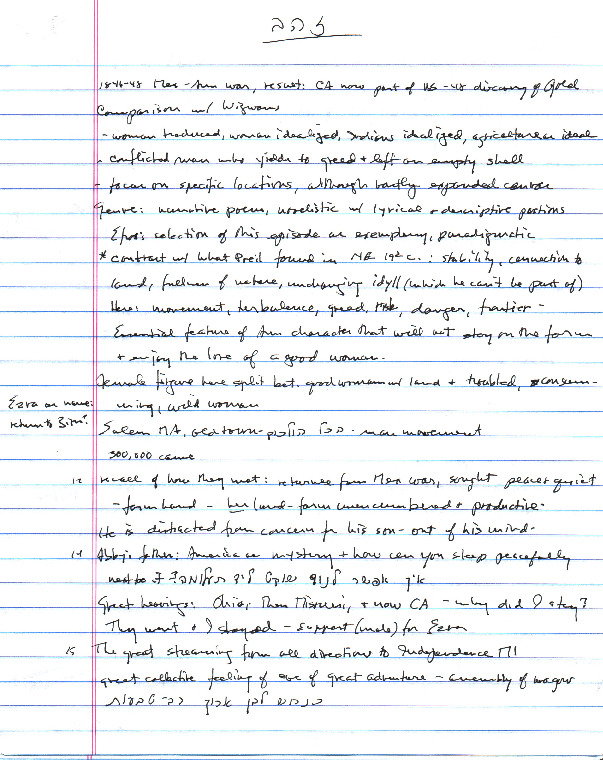 זהב
1846-48 Mex-Am war, result: CA now part of US - 48 discovery of Gold
Comparison w/
- woman traduced, woman idealized, Indians idealized, agriculture as ideal
- conflicted man who yields to greed + left an empty shell
- focus on specific locations, although vastly expanded canvas
Genre: narrative poem, novelistic w/ lyrical + descriptive portions
selection of this episode as exemplary, paradigmatic
* contrast w/ what Preil found in NE 19th c.: stability, connection to
land, fullness of nature, unchanging idyll (which he can't be part of)
Here: movement, turbulence, greed, risk, danger, frontier -
Essential feature of Am character that will not stay on the farm
+ enjoy the love of a good woman.
Female figure here split bet. good woman w/ land + troubled, consum-
Ezra as name:
ming, wild woman
return to Zion?
Salem MA, - mass movement
300,000 came
12 recall of how they met: returnee from Mex war, sought peace + quiet
- farm hand - her land - farm unencumbered + productive.
He is distracted from concern for his son - out of his mind.
14 Abby's father: America as mystery + how can you sleep peacefully
next to איך אפשר
Great heavings: Ohio, then Missouri, + now CA - why did I stay?
They went + I stayed - support (male) for Ezra
15 The great streaming from all directions to Independence MI
great collective feeling of eve of great adventure - assembly of wagons
לבן ארוך רב